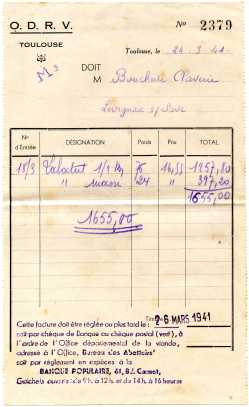 O. D. R. V.
No 2379
TOULOUSE
Toulouse, le 24-3-41
DOIT
M
Lévignac s/Save
No d'Entrée DÉSIGNATION Poids Prix TOTAL
18/3 1/9 76 16,55 1257,80
" " 24 " 397,20
1655,00
1655,00
26 MARS 1941
Cette facture doit être réglée au plus tard le :
soit par chèque de Banque ou chèque postal (vert), à
l'ordre de l'Office départemental de la viande,
adressé à l'Office, Bureau des Abattoirs
soit par règlement en espèces à la
BANQUE POPULAIRE, 61, Bd Carnot,
Guichets ouverts de 9 h. à 12 h. et de 14 h. à 16 heures